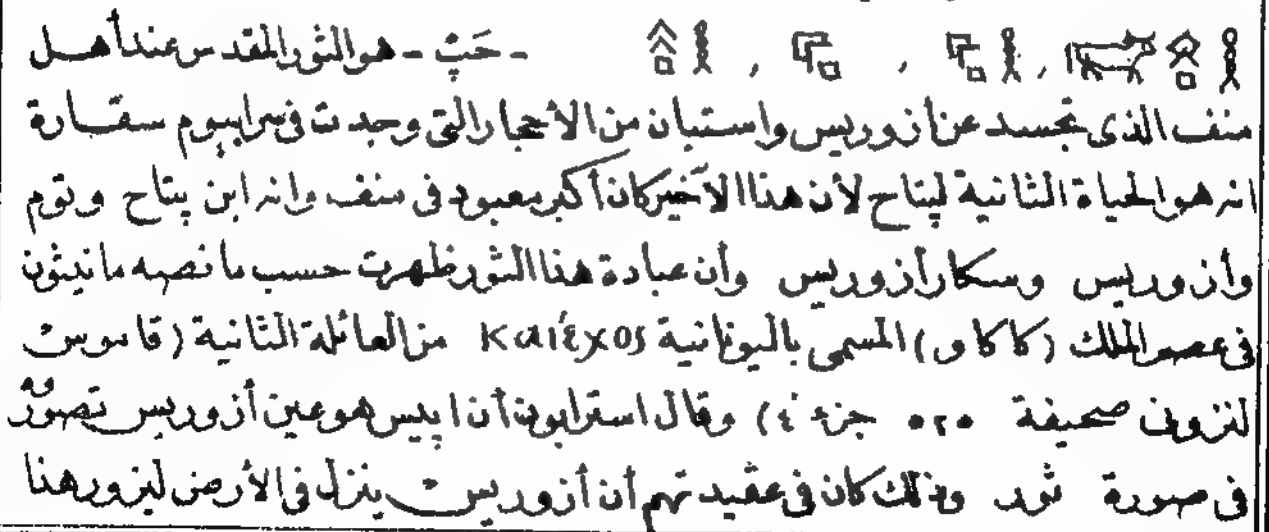 - حَپْ - هو الثور المقدس عند أهل
منف الذى تجسد عن أزوريس واستبان من الأحجار التى وجدت فى سرابيوم سقارة
انه هو الحياة الثانية لپتاح لأن هذا الآخير كان أكبر معبود فى منف وانه ابن پتاح وتوم
وأزوريس وسكار أزوريس وأن عبادة هذا الثور ظهرت حسب ما نصه مانيثون
فى عصر الملك (كاكاو) المسمى باليونانية Καιέχος من العائلة الثانية (قاموس
لنزون صحيفة ٥٢٥ جزء ٤) وقال استرابون أن اپيس هو عين أزوريس تصوّر
فى صورة ثور وذلك كان فى عقيدتهم أن أزوريس ينزل فى الأرض ليزور هنا